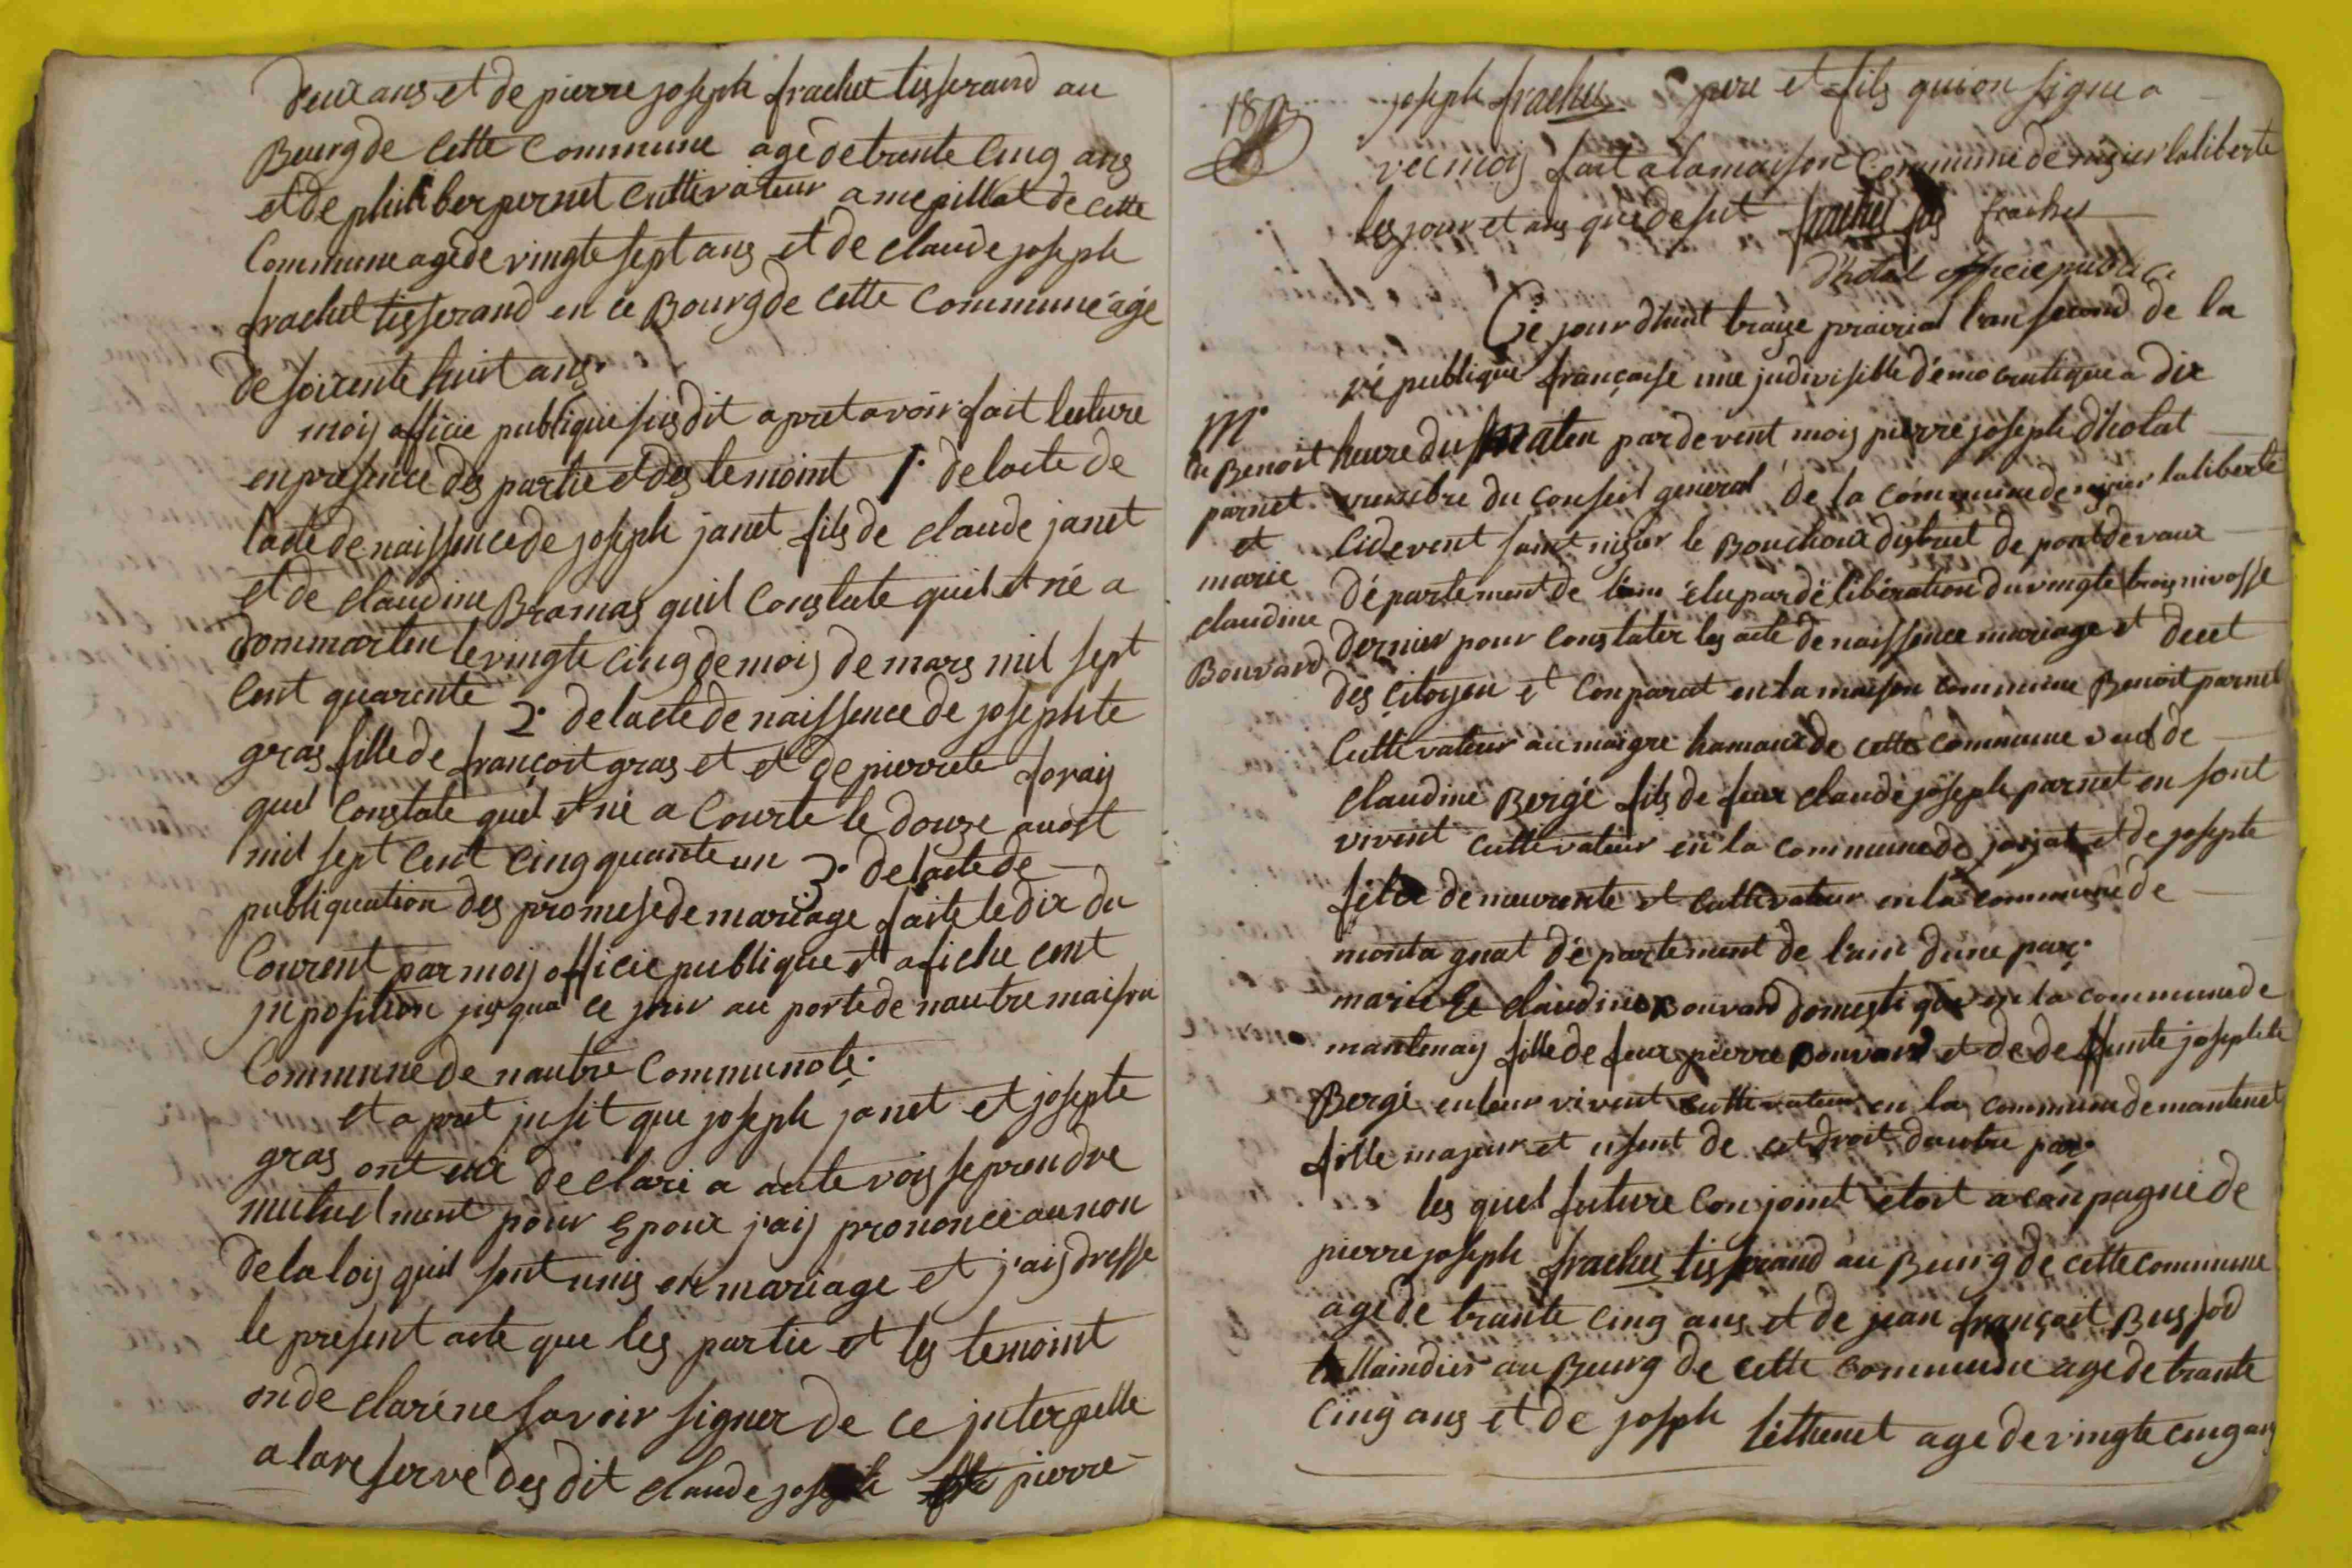 deux ans et de pierre joseph frachet tisserand au
Bourg de Cette Commune agé de trante Cinq ans
et de philiber pernet Cultivateur a mepillat de Cette
Commune agé de vingte sept ans et de claude joseph
frachet tisserand en ce Bourg de Cette Commune agé
de soicente huit ans.
mois officie publique susdit apret avoir fait lecture
en presence des partie et des temoint 1.° de lacte de
lacte de naissence de joseph janet fils de claude janet
et de claudine Bramas quil Constate quil et né a
dommarten le vingte cinq de mois de mars mil sept
Cent quarente 2.° de lacte de naissence de josephte
gras fille de françoit gras et et de pierrete foray
quil Constate quil et né a Courte le douze auost
mil sept Cent Cinqquante un 3.° de lacte de
publiquation des promese de mariage faite le dix du
Courent par mois officie publique et afiche cent
jnposition jusqua ce jour au porte de nautre maison
Commune de nautre Communote.
et apret jusit que joseph janet et josepte
gras ont declaré a aute vois se prendre
mutuelment pour Epoux j'ais prononcé au non
de la lois quil sont unis en mariage et j'ais dresse
le present acte que les partie et les temoint
on de claré ne savoir signer de ce jnterpelle
a la reserve des dit claude joseph pierre
joseph frachet pere et fils qui on signe a
vec mois fait a la maison Commune de nisier la liberte
les jour et ans que desut frachet fils frachet
d'hotal officie publice
Ce jour dhuit traize prairial l'an second de la
ré publique française une jndivisible démocratique a dix
M.
de Benoit heure du maten par devent mois pierre joseph Dhotat
parnet membre du conseil general de la commune de nisier la liberté
et Cidevent saint nisier le Bouchoux distriet de pont de vaux
marie département de l'ain élu par délibération du vingte trois nivosse
claudine dernier pour Constater les acte de naissence mariage et decet
Bouvard des Citoyen et Conparat en la maison commune Benoit parnet
Cultivateur au maigre hamaux de cette commune veud de
claudine Bergé fils de feux claude joseph parnet en sont
vivent cultivateur en la commune de jasjat et de josepte
demeurente et cultivateur en la commune de
montagnat département de l'ain dune par.
marie claudine Bouvard domestique en la commune de
mantenay fille de feux pierre Bouvard et de deffunte josephte
Bergé en leur vivent cultivateur en la commune de mantenet
fille majeur et usent de cet droit dautre par.
les quel future Conjoint étoit acconpagné de
pierre joseph frachet tisserand au Bourg de cette commune
agé de trante Cinq ans et de jean françoit Bussod
taillaindier au Bourg de Cette Commune age de trante
Cinq ans et de josph age de vingte cinq ans